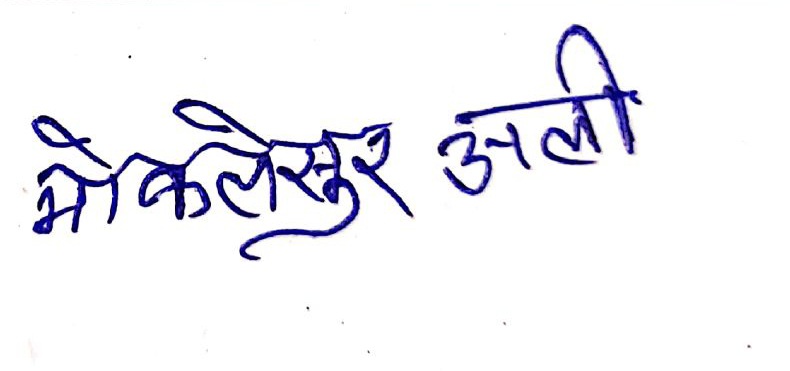 मोकलेसुर अली